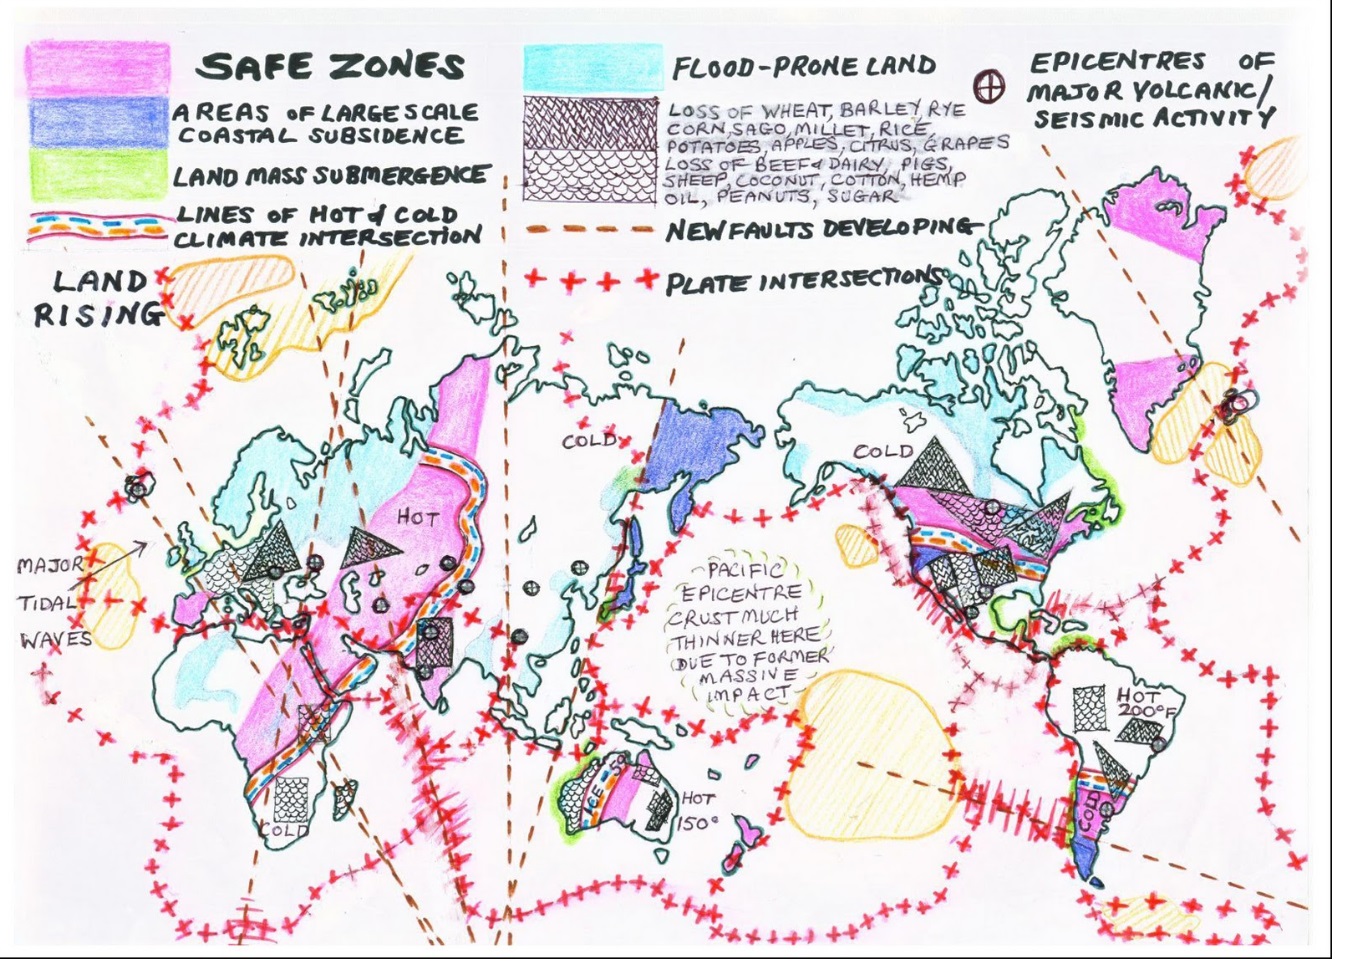 SAFE ZONES
AREAS OF LARGE SCALE
COASTAL SUBSIDENCE
LAND MASS SUBMERGENCE
LINES OF HOT & COLD
CLIMATE INTERSECTION
LAND
RISING
FLOOD-PRONE LAND
LOSS OF WHEAT, BARLEY, RYE
CORN, SAGO, MILLET, RICE,
POTATOES, APPLES, CITRUS, GRAPES
LOSS OF BEEF & DAIRY, PIGS,
SHEEP, COCONUT, COTTON, HEMP
OIL, PEANUTS, SUGAR
NEW FAULTS DEVELOPING
PLATE INTERSECTIONS
EPICENTRES OF
MAJOR VOLCANIC/
SEISMIC ACTIVITY
COLD
COLD
HOT
MAJOR
TIDAL
WAVES
PACIFIC
EPICENTRE
CRUST MUCH
THINNER HERE
DUE TO FORMER
MASSIVE
IMPACT
HOT
200°F
ICE
HOT
150°
COLD
COLD